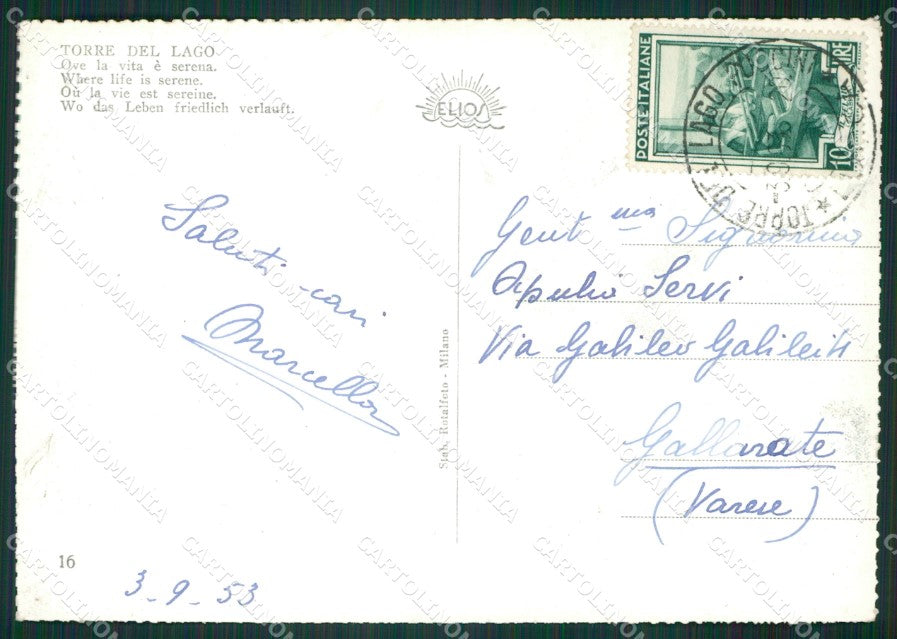 TORRE DEL LAGO
Ove la vita è serena.
Where life is serene.
Où la vie est sereine.
Wo das Leben friedlich verlauft.
ELIOS
POSTE ITALIANE
LIRE
10
TORRE DEL LAGO PUCCINI
Saluti cari
Marcello
Gent ma Signorina
Servi
Via Galileo Galilei
Gallarate
(Varese)
Stab. Rotalfoto - Milano
16
3-9-53
CARTOLINOMANIA